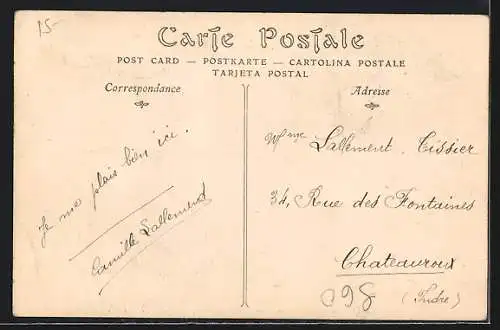 15-
Carte Postale
POST CARD — POSTKARTE — CARTOLINA POSTALE
TARJETA POSTAL
Correspondance
Je me plais bien ici.
Camille Lallement
Adresse
Mme Lallement. Tissier
34, Rue des Fontaines
Chateauroux
(Indre)
098